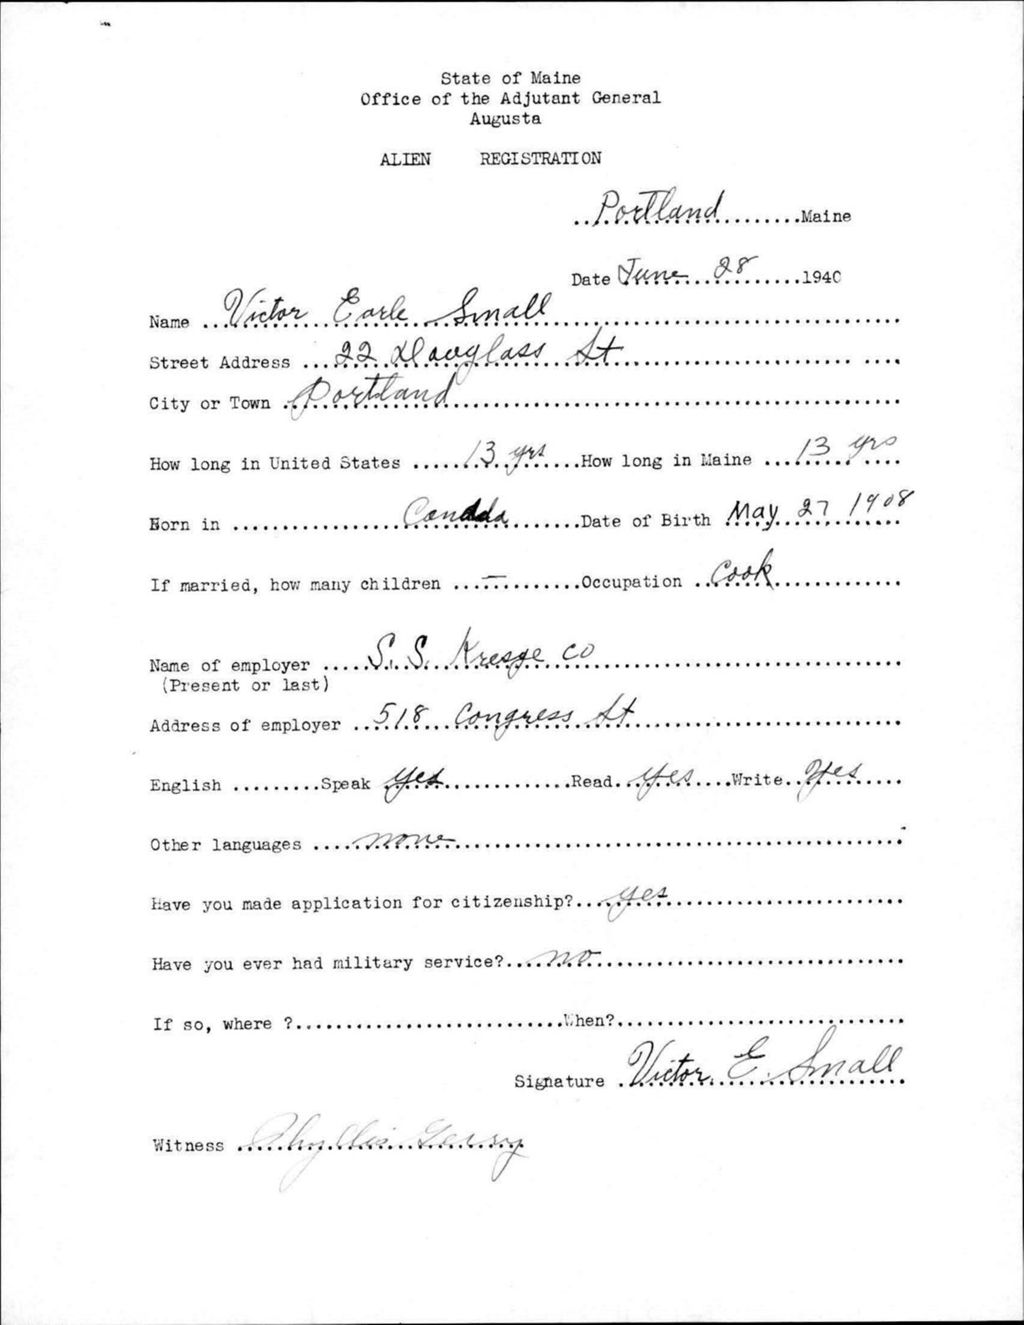 State of Maine
Office of the Adjutant General
Augusta
ALIEN REGISTRATION
Portland Maine
Date June 28 1940
Name Victor Earle Small
Street Address 22 Douglass St
City or Town Portland
How long in United States 13 yrs How long in Maine 13 yrs
Born in Canada Date of Birth May 27 1908
If married, how many children — Occupation Cook
Name of employer S. S. Kresge Co
(Present or last)
Address of employer 518 Congress St
English Speak yes Read yes Write Yes
Other languages none
Have you made application for citizenship? yes
Have you ever had military service? no
If so, where ? When?
Signature Victor E. Small
Witness Phyllis